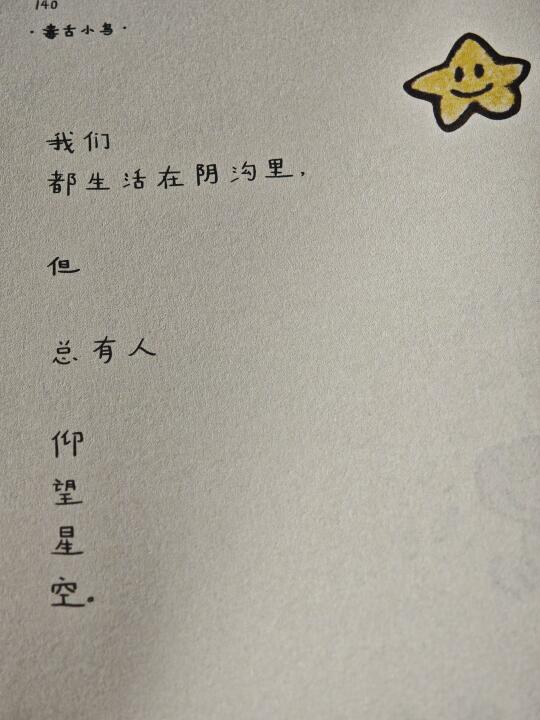 140
·毒舌小鸟·
我们
都生活在阴沟里，
但
总有人
仰
望
星
空。